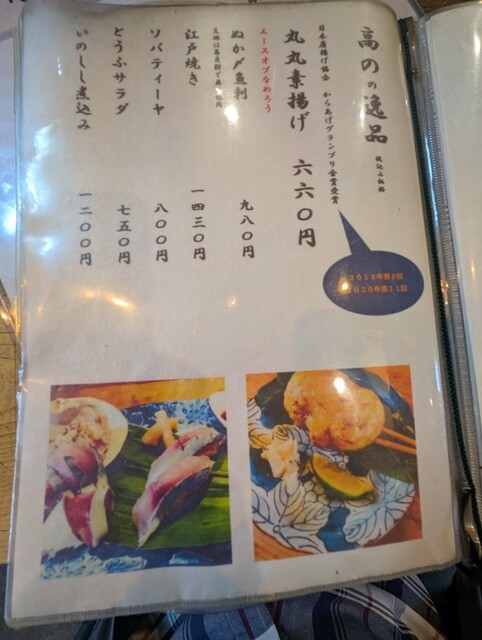 高のの逸品 税込み価格
日本唐揚げ協会 からあげグランプリ金賞受賞
丸丸素揚げ 六六〇円
2018年第9回
2020年第11回
エースオブなめろう
ぬか〆魚刺 九八〇円
江戸焼き 一四三〇円
ソバティーヤ 八〇〇円
とうふサラダ 七五〇円
いのしし煮込み 一二〇〇円